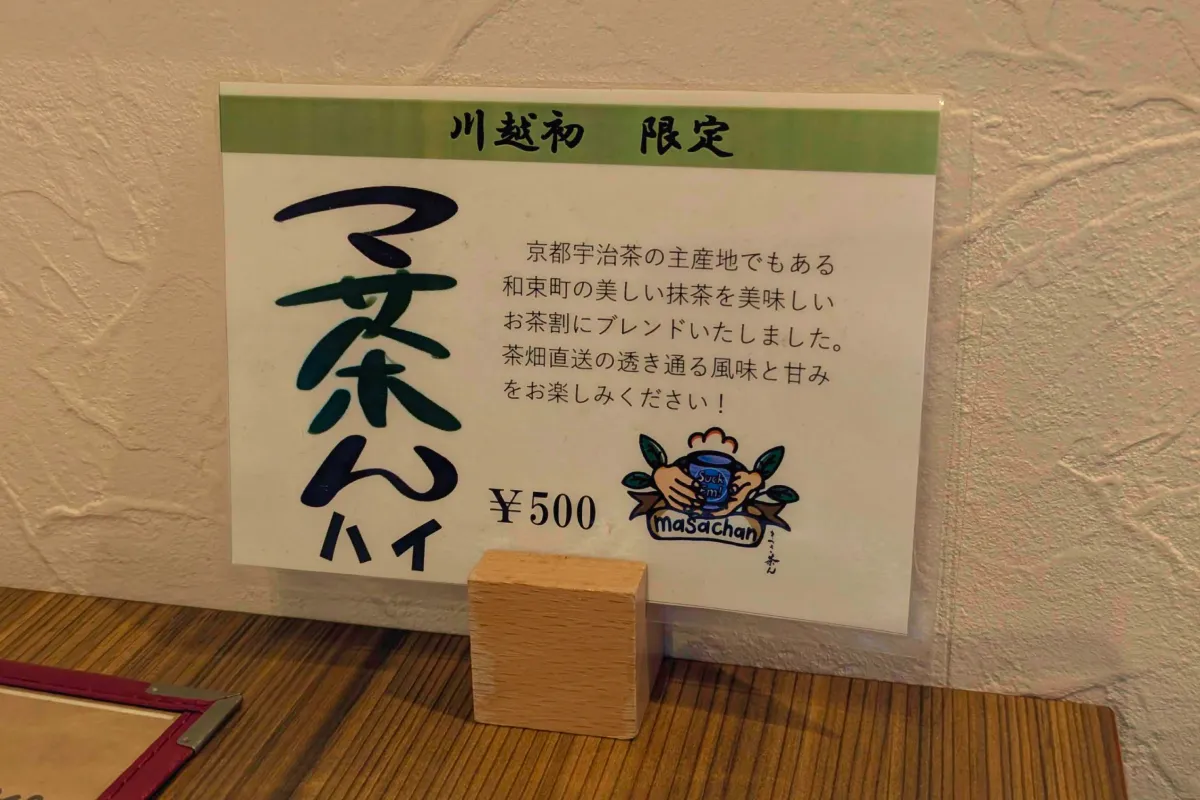 川越初　限定
マ茶ん
ハイ
京都宇治茶の主産地でもある
和束町の美しい抹茶を美味しい
お茶割にブレンドいたしました。
茶畑直送の透き通る風味と甘み
をお楽しみください！
￥500
Suck
im!
masachan